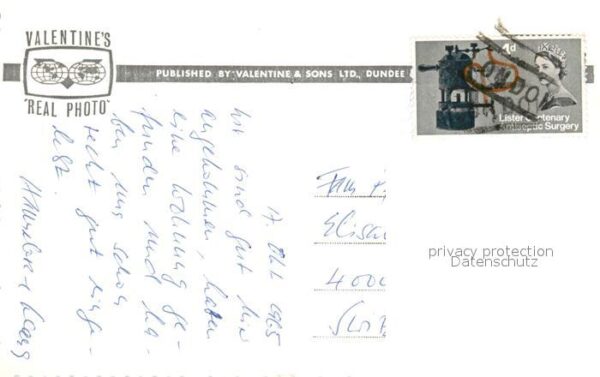 VALENTINE'S
"REAL PHOTO"
PUBLISHED BY VALENTINE & SONS LTD., DUNDEE
4d
LONDON
Lister Centenary
Antiseptic Surgery
17. Okt 1965
wir sind gut hier
angekommen, haben
eine Wohnung ge-
funden und ha-
ben uns schon
recht gut einge-
lebt.
Hannelore
4000
privacy protection
Datenschutz